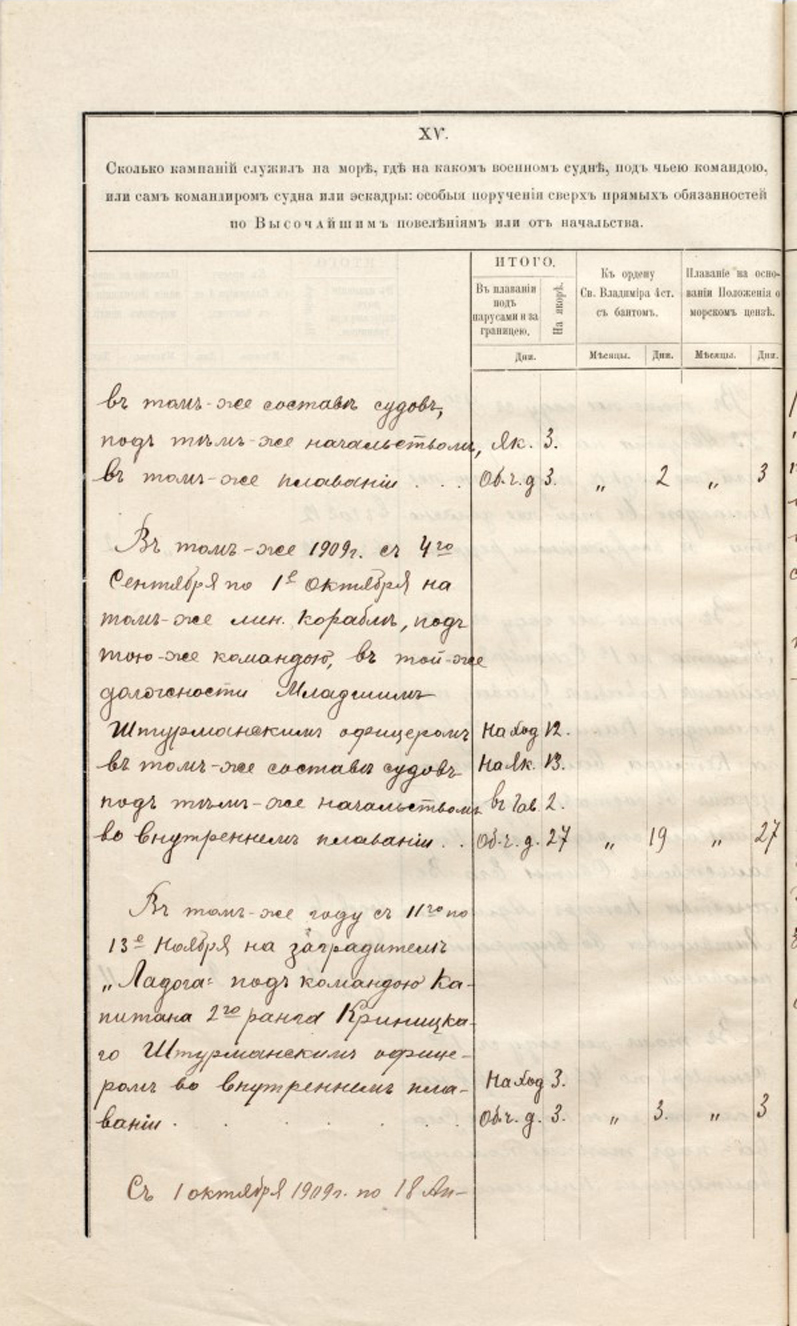 XV.
Сколько кампаній служилъ на морѣ, гдѣ на какомъ военномъ суднѣ, подъ чьею командою,
или самъ командиромъ судна или эскадры: особыя порученія сверхъ прямыхъ обязанностей
по Высочайшимъ повелѣніямъ или отъ начальства.
ИТОГО.
Въ плаваніи подъ парусами и за границею.
На якорѣ.
Дни.
Къ ордену Св. Владиміра 4 ст. съ бантомъ.
Мѣсяцы. Дни.
Плаваніе на осно-
ваніи Положенія о
морскомъ цензѣ.
Мѣсяцы. Дни.
въ томъ-же составѣ судовъ,
подъ тѣмъ-же начальствомъ, Як. 3.
въ томъ-же плаваніи . . . Об. ч. д 3. „ 2 „ 3
Въ томъ-же 1909г. съ 4го
Сентября по 1е Октября на
томъ-же мин. кораблѣ, подъ
тою-же командою, въ той-же
должности Младшимъ
Штурманскимъ офицеромъ На ход 12.
въ томъ-же составѣ судовъ На Як. 13.
подъ тѣмъ-же начальствомъ въ Гав. 2.
во внутреннемъ плаваніи . . Об. ч. д. 27 „ 19 „ 27
Въ томъ-же году съ 11го по
13е Ноября на заградителѣ
„Ладога“ подъ командою Ка-
питана 2го ранга Криницка-
го Штурманскимъ офице-
ромъ во внутреннемъ пла- На ход 3.
ваніи . . . . . . Об. ч. д. 3. „ 3. „ 3
Съ 1 октября 1909г. по 18 Ап-